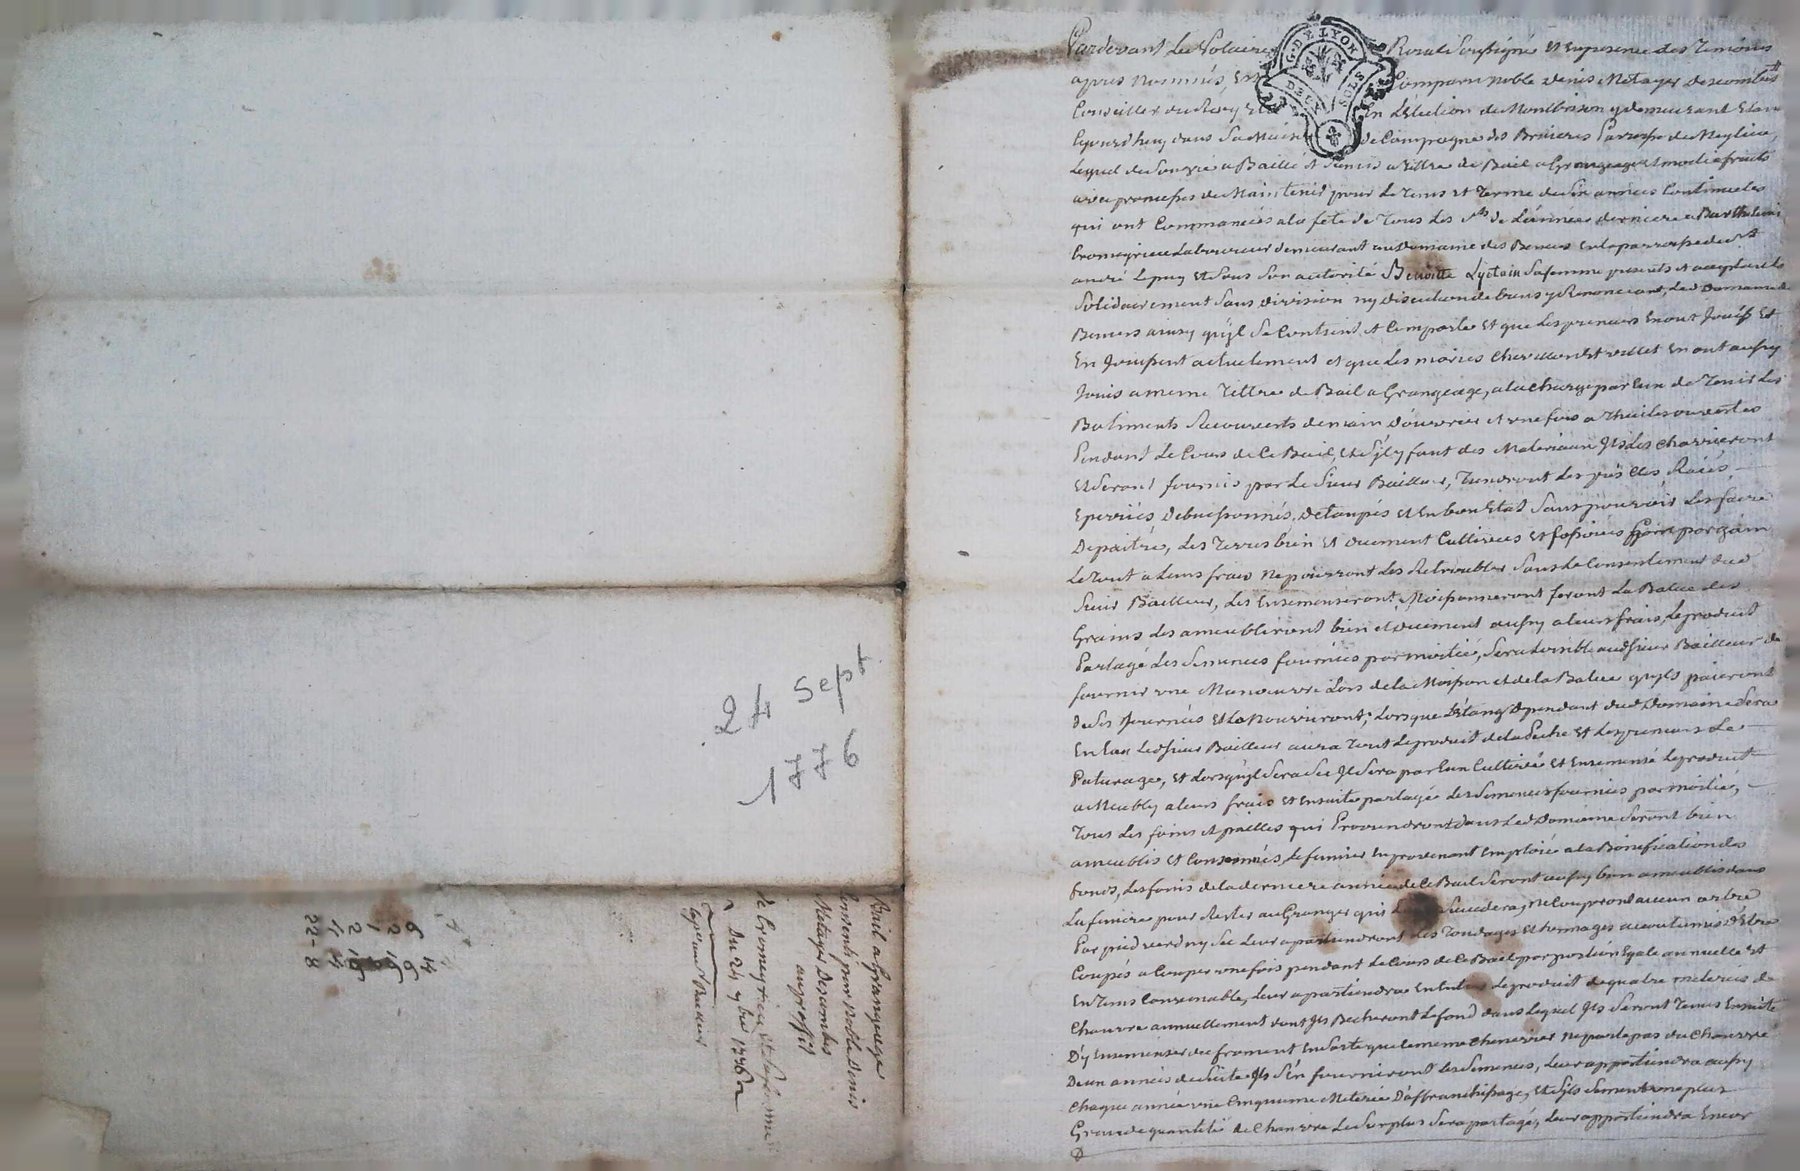 24 sept
1776
Bail a Grangeage
consenti par Noble Denis
Metayer Descombes
au proffit
de Cromeyrieu et sa femme
Du 24 7bre 1776
expedient Bailleur
G. DE LYON
DEUX SOLS
Pardevant Le Notaire Royal soussigné et en presence des Temoins
apres Nommés, est comparu Noble denis Metayer descombes
Conseiller du Roy en L'Election de Montbrison y demeurant Etant
aujourd'huy dans sa Maison de Campagne des Bruieres Parroisse de
Lequel de son gré a Baillé et remis a Tittre de Bail a Grangeage et moitié fruits
avec promesses de Maintenir pour Le Tems et Terme de Six années Continueles
qui ont Commancées a la fete de Tous Les Sts de L'année derniere a Barthelemi
Cromeyrieu Laboureur demeurant au Domaine des Bruiers en la parroisse de St
andré Lepuy et sous son autorité Benoitte sa femme presents et acceptants
Solidairement sans division ny discution de biens y Renonceant, Led Domaine de
Bruiers ainsy qu'il se Contient et Comporte et que Les preneurs En ont Jouis et
En Jouissent actuelement et que Les mariés et En ont aussy
Jouis a meme Tittre de Bail a Grangeage, a la charge par Eux de Tenir Les
Batiments Recouverts de main d'ouvrier et une fois a Thuiles ouvertes
Pendant Le Cours de Ce Bail, Et s'il y faut des Materiaux Ils Les charrieront
Et Seront fournis par Le Sieur Bailleur, Tiendront Les prés Clos Raiés
Eperriés Debuissonnés, detaupés et En bon Etat Sans pouvoir Les faire
Depaitre, Les Terres bien et duement Cultivées et fossoiées
Le Tout a Leurs frais Ne pourront Les Retroubler Sans Le Consentement dud
Sieur Bailleur, Les Ensemenseront, Moissonneront feront La Batue des
Grains Les ameubliront bien et duement aussy a leurs frais, Le produit
Partagé Les Semences fournies par moitié, Sera Loisible aud Sieur Bailleur de
fournir une Manoeuvre Lors de la Moisson et de la Batue qu'ils paieront
de Ses Journées et La Nourriront; Lorsque L'Etang Dependant dud Domaine Sera
En Eau Led Sieur Bailleur aura Tout Le produit de la Peche Et Les preneurs Le
Paturage, Et Lorsqu'il Sera Sec Il Sera par Eux Cultivé et Ensemensé Le produit
ameubly a Leurs frais Et Ensuite partagé Les Semences fournies par moitié,
Tous Les foins et pailles qui Proviendront dans Led Domaine Seront bien
ameublis et Consommés, Le fumier En provenant Emploié a La Bonification des
fonds, Les foins de la derniere année de Ce Bail Seront aussy bien ameublis dans
La feniere pour Rester au Granger qui Succedera, Ne Couperont aucun arbre
Par pied verd ny Sec Leur apartiendront Les Tondages et hermages accoutumés d'Etre
Coupés a Couper une fois pendant Le Cours de Ce Bail par portion Egale annuelle et
En Tems Convenable, Leur apartiendra En Entier Le produit de quatre meterées de
Chanvre annuellement dont Ils Becheront Le fond dans Lequel Ils Seront Tenus Ensuite
D'y Ensemenser du froment En Sorte que Le meme Chenevier Ne porte pas du Chanvre
Deux années de Suite Ils S'en fourniront Les Semences, Leur appartiendra aussy
Chaque année une Cinquieme Meterée D'affranchissage, Et S'ils Sement une plus
Grande quantité de Chanvre Le Surplus Sera partagé, Leur appartiendra Encor